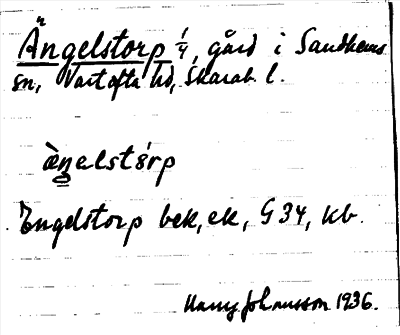 Ängelstorp 1/4, gård i Sandhems
sn, Vartofta hd, Skarab. l.
ὲŋelstórp
Engelstorp bek, ek, G 34, kb.
Harry Johansson 1936.